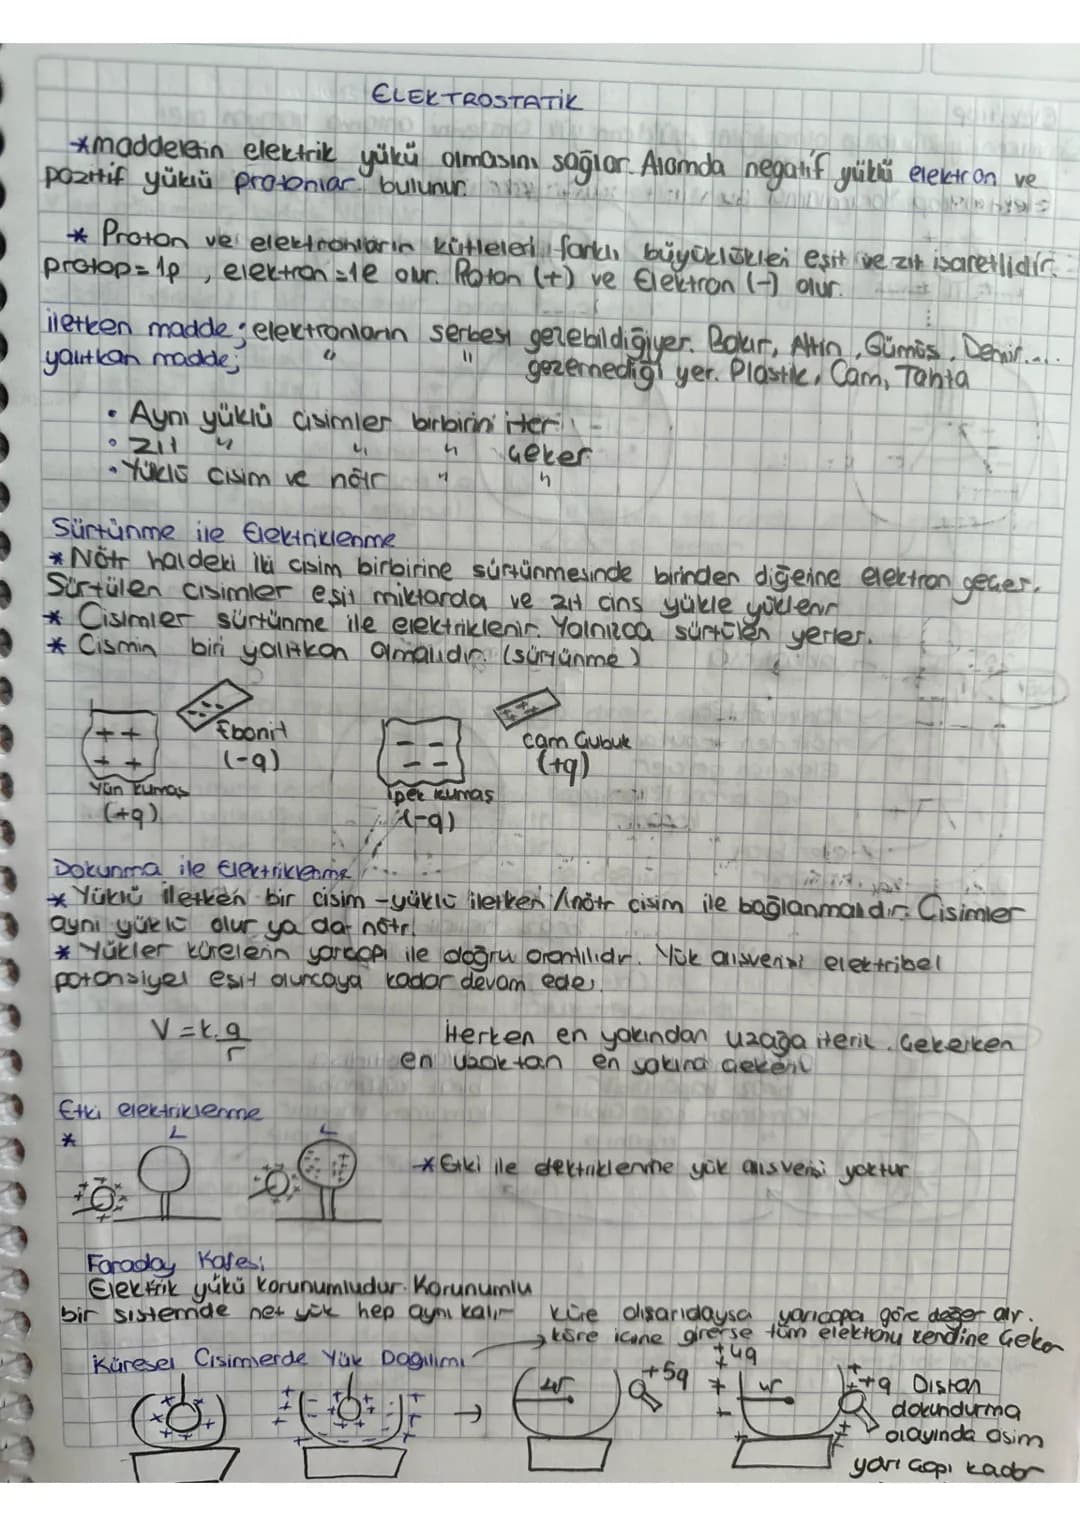 ELEKTROSTATİK
*maddelerin elektrik yükü olmasını sağlar. Atomda negatif yüklü elektron ve
pozitif yüklü protonlar bulunur.
* Proton ve elektronların kütleleri farklı büyüklükleri eşit ve zıt işaretlidir.
proton=1p , elektron=1e olur. Proton (+) ve Elektron (-) olur.
iletken madde; elektronların serbest gezebildiği yer. Bakır, Altın, Gümüş, Demir....
yalıtkan madde; " " gezemediği yer. Plastik, Cam, Tahta
• Aynı yüklü cisimler birbirini iter
• Zıt " " " çeker
• Yüklü cisim ve nötr " "
Sürtünme ile Elektriklenme
* Nötr haldeki iki cisim birbirine sürtünmesinde birinden diğerine elektron geçer.
Sürtülen cisimler eşit miktarda ve zıt cins yükle yüklenir
* Cisimler sürtünme ile elektriklenir. Yalnızca sürtülen yerler.
* Cismin biri yalıtkan olmalıdır. (sürtünme)
Ebonit
(-q)
Cam Çubuk
(+q)
Yün kumaş
(+q)
İpek kumaş
(-q)
Dokunma ile Elektriklenme
* Yüklü iletken bir cisim -yüklü iletken/nötr cisim ile bağlanmalıdır. Cisimler
aynı yüklü olur ya da nötr.
* Yükler kürelerin yarıçapı ile doğru orantılıdır. Yük alışverişi elektriksel
potansiyel eşit oluncaya kadar devam eder.
V = k.q/r
İterken en yakından uzağa iterir. Çekerken
en uzaktan en yakına çekerir
Etki elektriklenme
*
L
L
*Etki ile elektriklenme yük alışverişi yoktur
Faraday Kafesi
Elektrik yükü korunumludur. Korunumlu
bir sistemde net yük hep aynı kalır
küre dışarıdaysa yarıçapa göre değer alır.
küre içine girerse tüm elektronu kendine çeker
Küresel Cisimlerde Yük Dağılımı
+5q
+4q
+q
Dıştan
dokundurma
olayında cisim
yarı çapı kadar